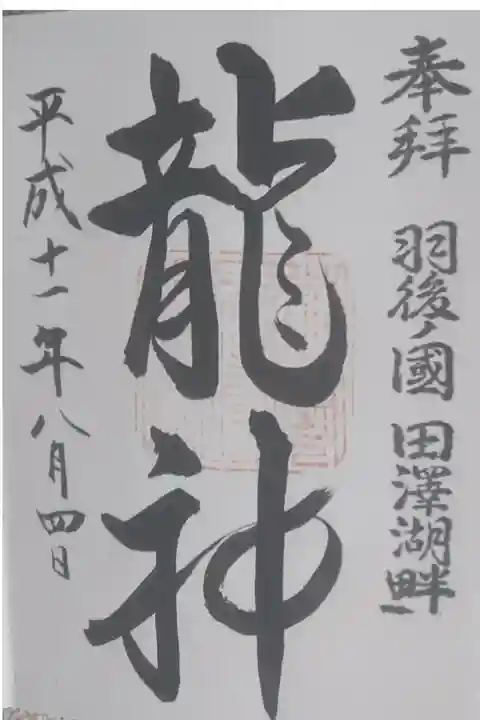 奉拜 羽後ノ國 田澤湖畔
龍神
平成十一年八月四日